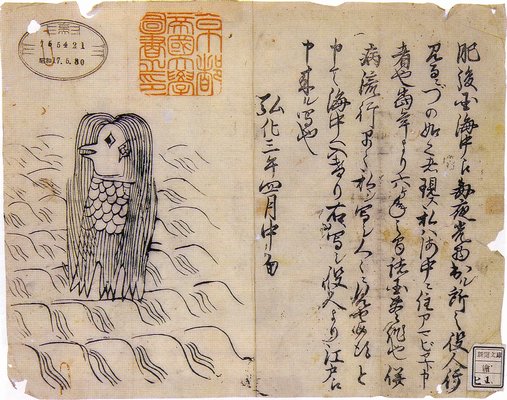 肥後国海中え毎夜光物出ル所之役人行
見るニづの如く者現ス私ハ海中ニ住アマビヱト申
者也当年より六ヶ年之間諸国豊作也併
病流行早々私ヲ写シ人々ニ見セ候得と
申て海中へ入けり右写シ役人より江戸え
申来ル写也
弘化三年四月中旬
京都
帝國大學
圖書之印
165421
昭和17.6.30
新聞文庫